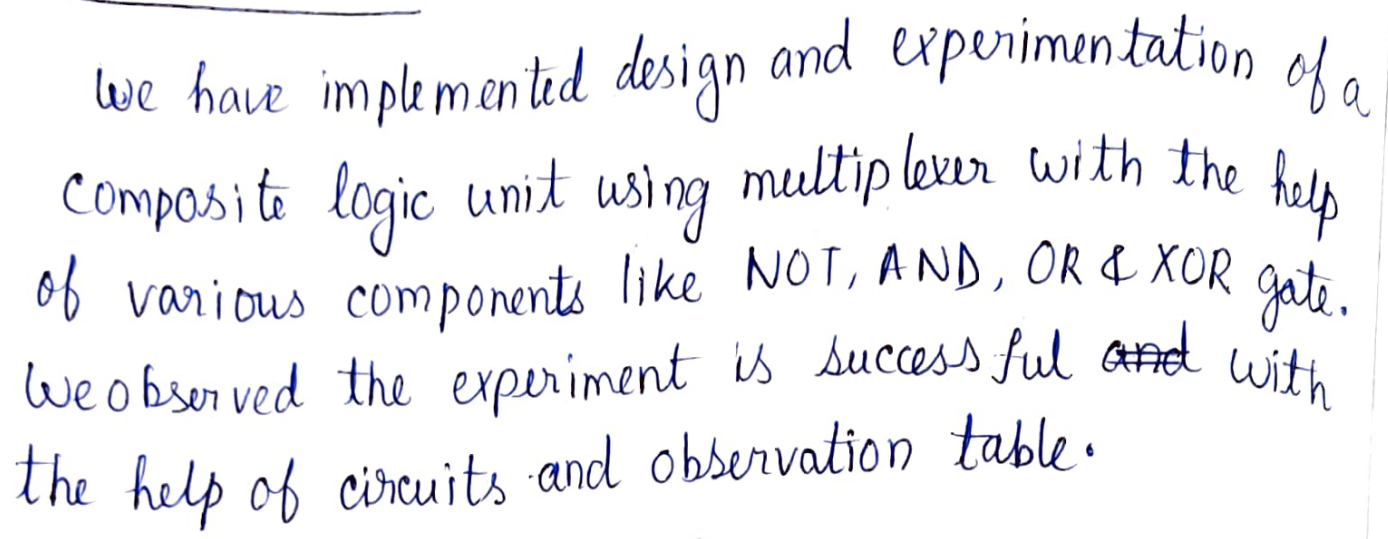 We have implemented design and experimentation of a
composite logic unit using multiplexer with the help
of various components like NOT, AND, OR & XOR gate.
We observed the experiment is successful and with
the help of circuits and observation table.